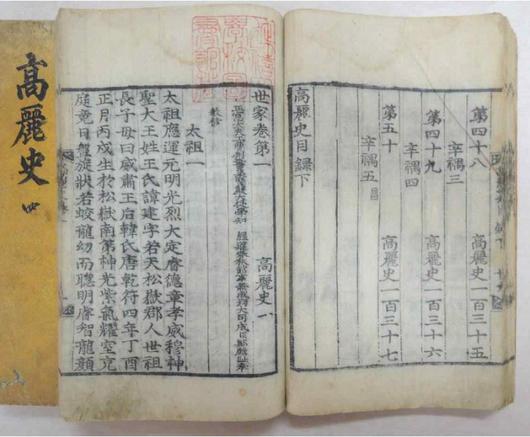 第四十八 高麗史一百三十五
辛禑三
第四十九 高麗史一百三十六
辛禑四
第五十 高麗史一百三十七
辛禑五 昌
高麗史目錄下
世家卷第一 高麗史一
正憲大夫工曹判書集賢殿大提學知 經筵春秋館事兼成均大司成臣鄭麟趾奉
教修
太祖一
太祖應運元明光烈大定睿德章孝威穆神
聖大王姓王氏諱建字若天松嶽郡人世祖
長子母曰威肅王后韓氏唐乾符四年丁酉
正月丙戌生於松嶽南第神光紫氣耀室充
庭竟日盤旋狀若蛟龍幼而聰明睿智龍顏
高麗史 四